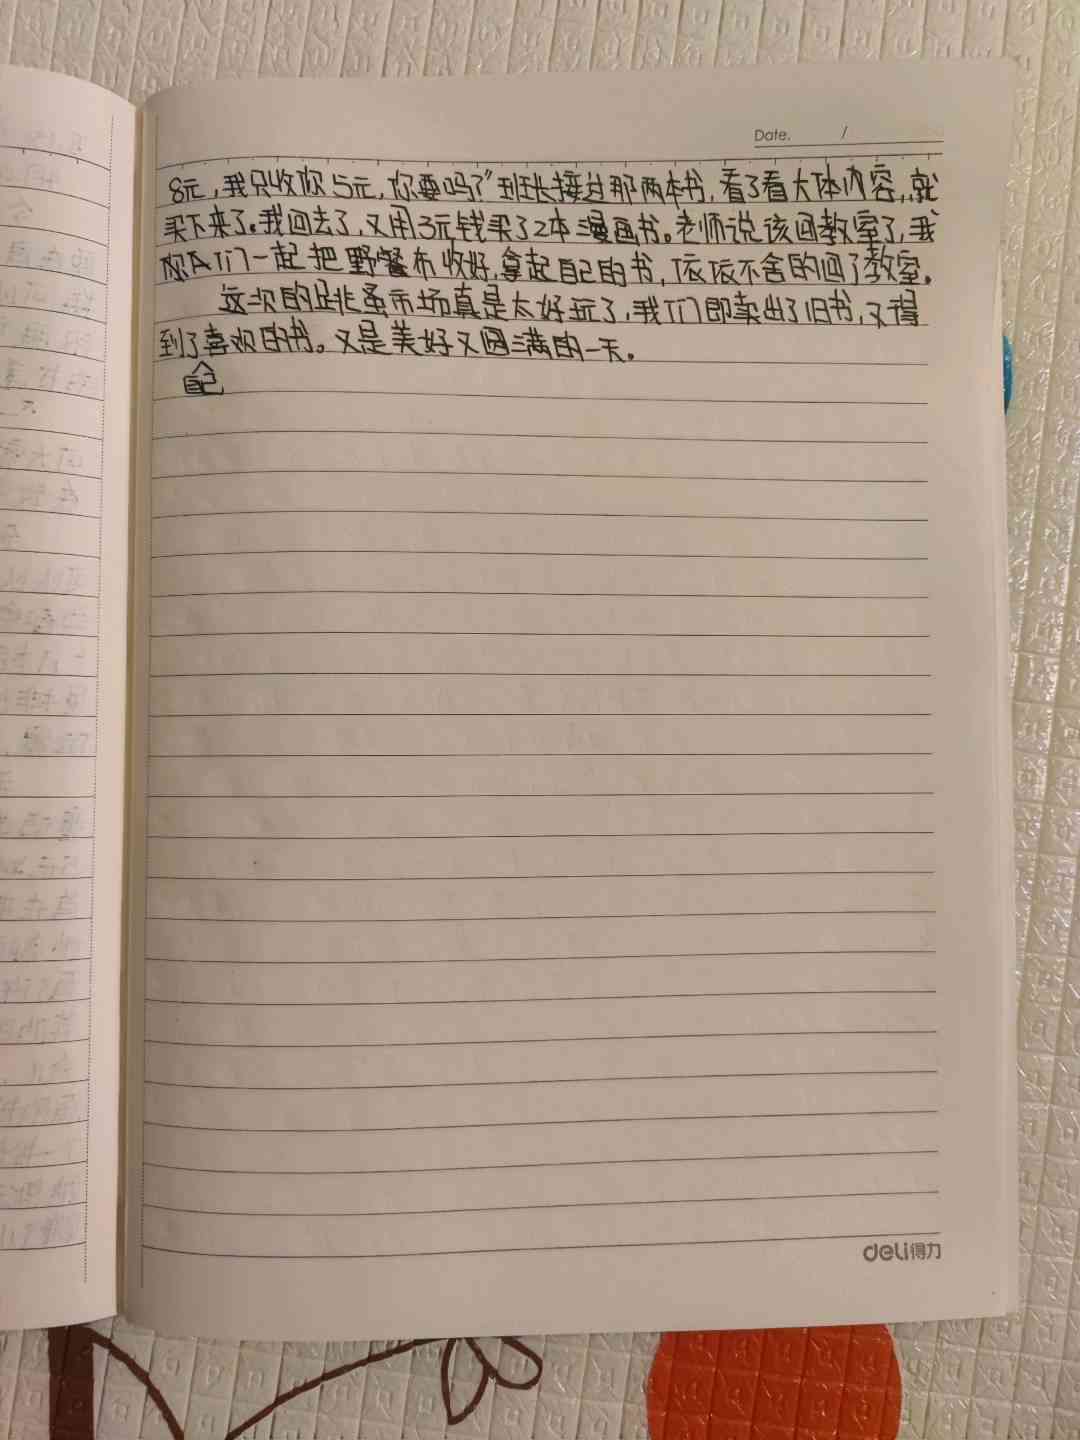 Date. /
8元,我只收你5元,你要吗?"班长接过那两本书,看了看大体内容,就
买下来了。我回去了,又用3元钱买了2本漫画书。老师说该回教室了,我
你们一起把野餐布收好,拿起自己的书,依依不舍的回了教室。
这次的跳蚤市场真是太好玩了,我们即卖出了旧书,又得
到了喜欢的书。又是美好又圆满的一天。
自己
deli得力